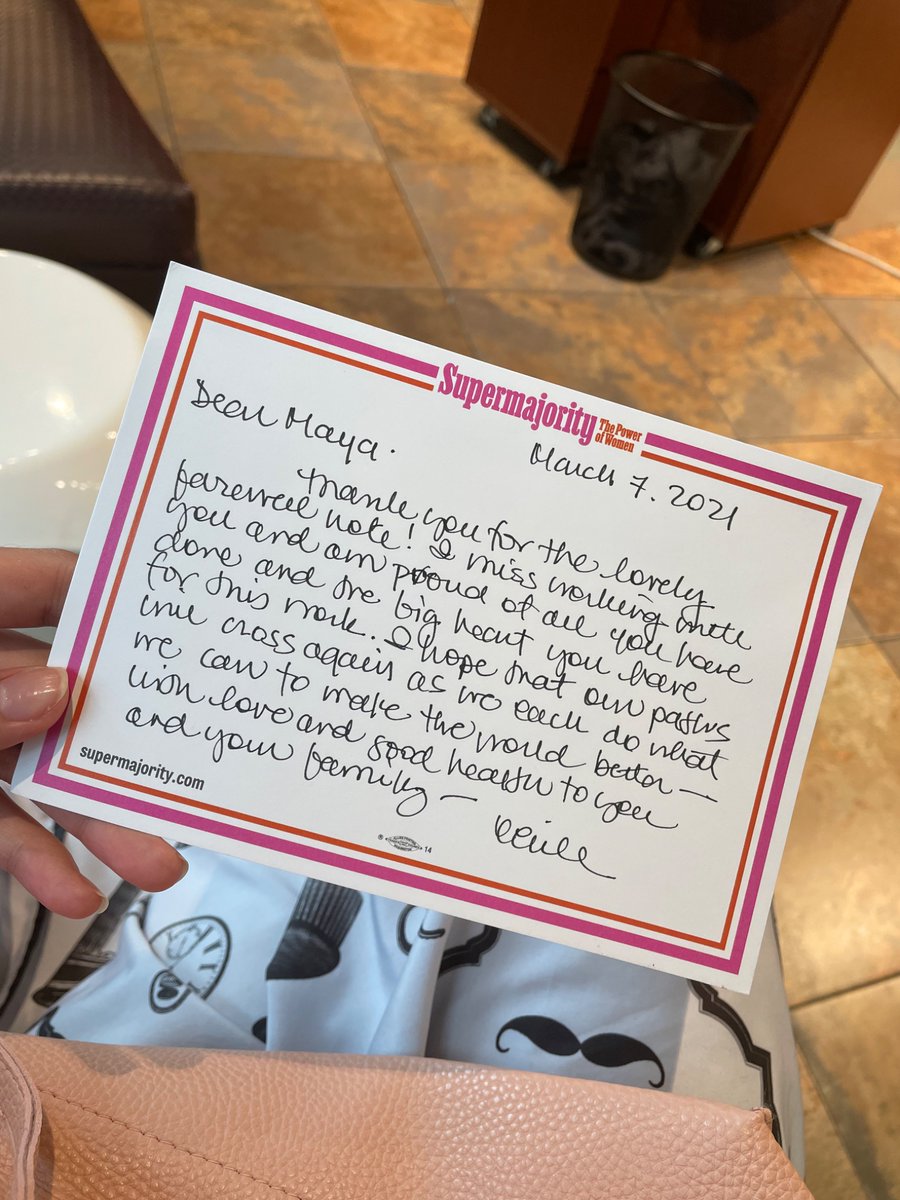 Supermajority
The Power
of Women
Dear Maya.
March 7. 2021
Thank you for the lovely
farewell note! I miss working with
you and am proud of all you have
done and the big heart you have
for this work. I hope that our paths
will cross again as we each do what
we can to make the world better —
With love and good health to you
and your family —
supermajority.com
® 14